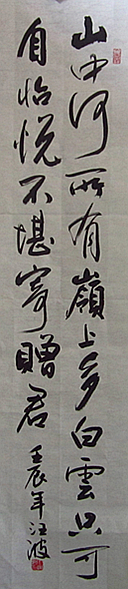 山中何所有嶺上多白雲只可
自怡悦不堪寄贈君
壬辰年汪波